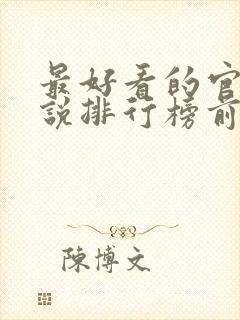 最好看的官
說排行榜前
陳博文